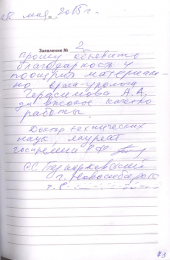 28 мая 2015 г.
Заявление № 2
Прошу объявить
благодарность и
поощрить материаль-
но врача-уролога
Герасимова А.А.
за высокое качество
работы.
Доктор технических
наук, лауреат
госпремии РФ
г. Новосибирск